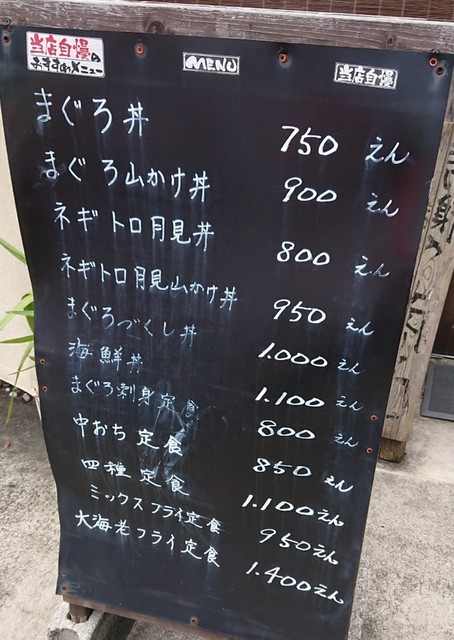 当店自慢の
おすすめメニュー
MENU
当店自慢
まぐろ丼 750 えん
まぐろ山かけ丼 900 えん
ネギトロ月見丼 800 えん
ネギトロ月見山かけ丼 950 えん
まぐろづくし丼 1.000 えん
海鮮丼 1.100 えん
まぐろ刺身定食 800 えん
中おち定食 850 えん
四種定食 1.100 えん
ミックスフライ定食 950 えん
大海老フライ定食 1.400 えん